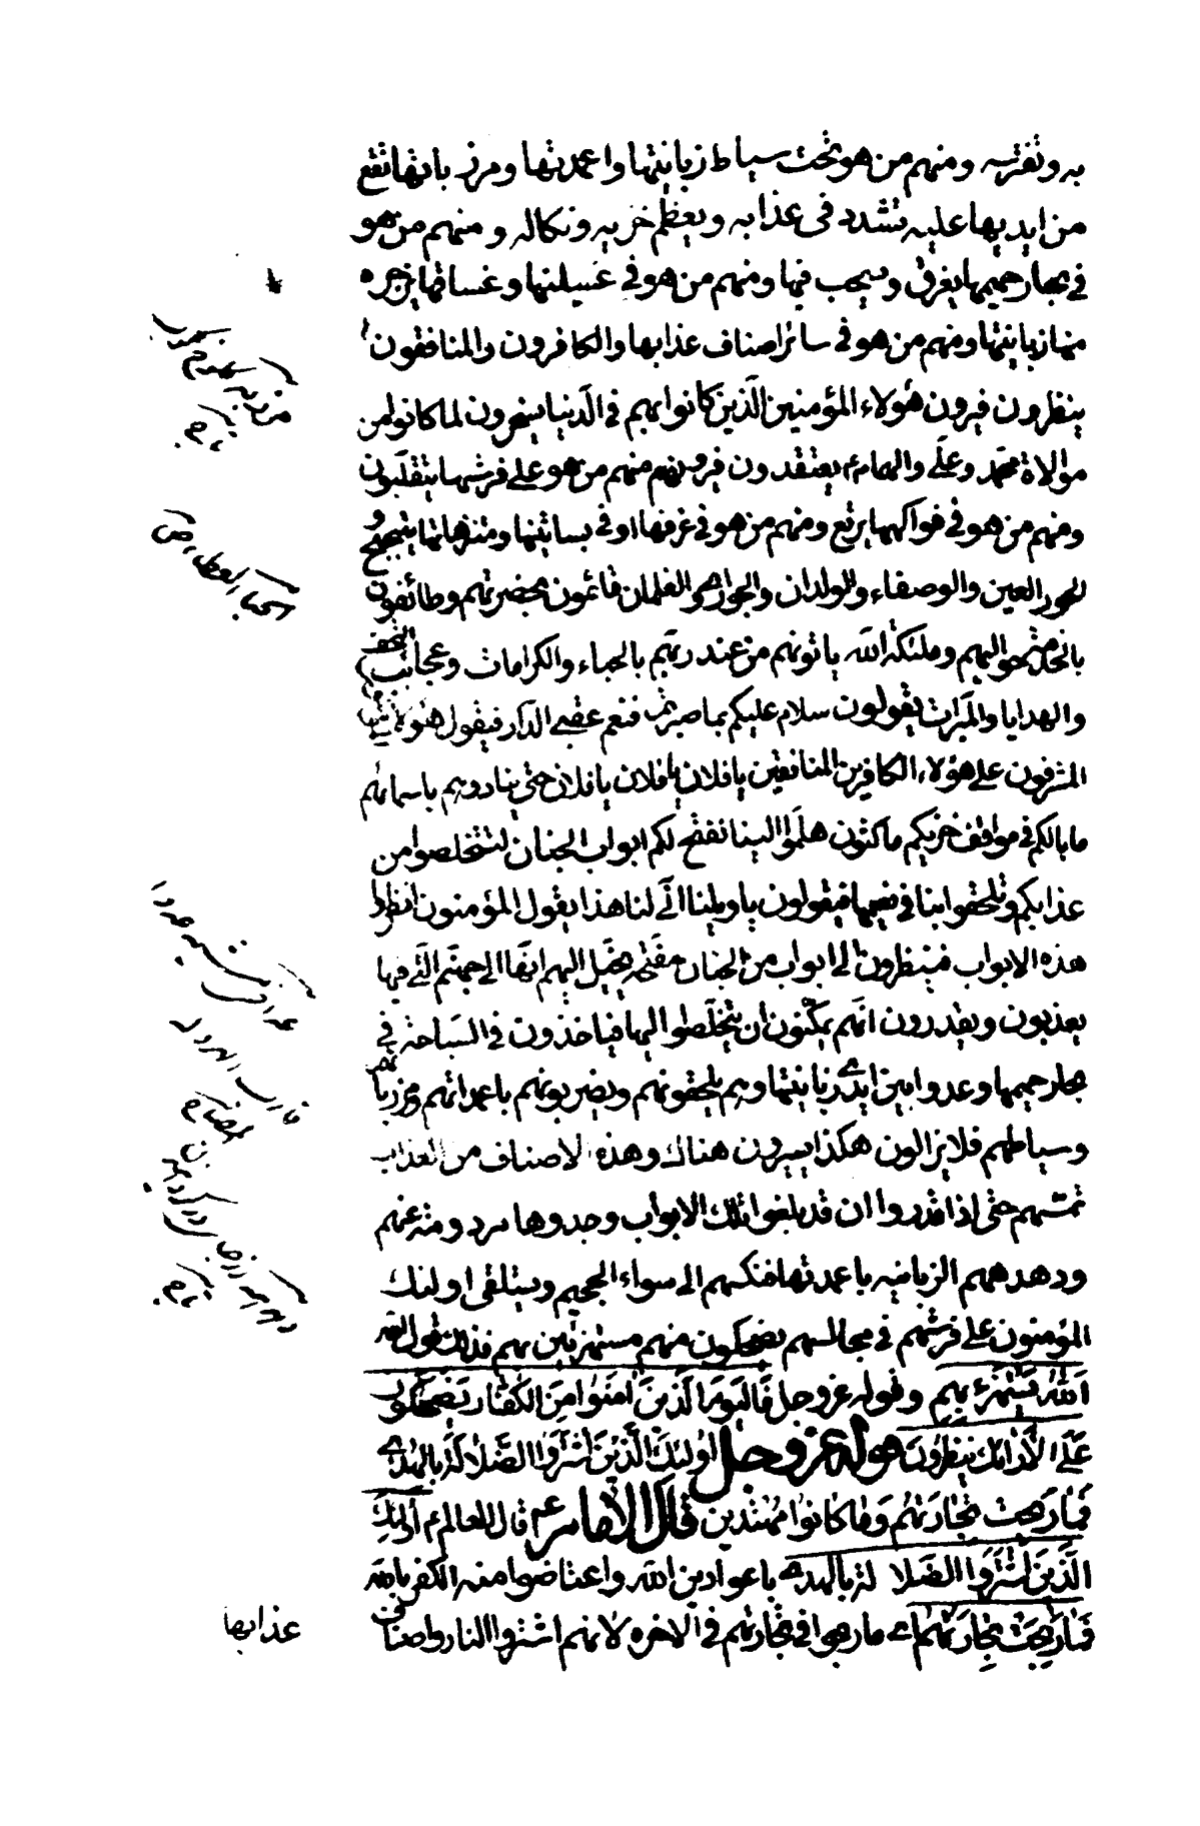 به وتفترسه ومنهم من هو تحت سياط زبانيتها واعمدتها ومرزباتها تقع
من ايديها عليه تشدد فى عذابه ويعظم خزيه ونكاله ومنهم من هو
في بحار حميمها يغرق ويسحب فيها ومنهم من هو في غسلينها وغساقها يزجره
منها زبانيتها ومنهم من هو في سائر اصناف عذابها والكافرون والمنافقون
ينظرون فيرون هؤلاء المؤمنين الذين كانوا بهم في الدنيا يسخرون لما كانوا من
موالاة محمد وعلي والهما م يعتقدون فيرونهم منهم من هو على فرشها يتقلبون
ومنهم من هو في فواكهها يرتع ومنهم من هو في غرفها او في بساتينها ومتنزهاتها يتبحبح
والحور العين والوصفاء والولدان والجواري والغلمان قائمون بحضرتهم وطائفون
بالخدمة حواليهم وملئكة الله ياتونهم من عند ربهم بالحباء والكرامات وعجائب التحف
والهدايا والمبرات يقولون سلام عليكم بما صبرتم فنعم عقبى الدار فيقول هؤلاء
المشرفون على هؤلاء الكافرين المنافقين يا فلان يا فلان يا فلان حتى ينادونهم باسمائهم
ما بالكم في مواقف خزيكم ماكثون هلموا الينا نفتح لكم ابواب الجنان لتتخلصوا من
عذابكم وتلحقوا بنا في نعيمها فيقولون يا ويلنا انى لنا هذا يقول المؤمنون انظروا
هذه الابواب فينظرون الى ابواب من الجنان مفتحة يخيل اليهم انها الى جهنم التي فيها
يعذبون ويقدرون انهم يمكنون ان يتخلصوا اليها فياخذون في السباحة في
بحار حميمها وعدوا بين ايدي زبانيتها وهم يلحقونهم ويضربونهم باعمدتهم ومرزباتهم
وسياطهم فلا يزالون هكذا يسيرون هناك وهذه الاصناف من العذاب
تمسهم حتى اذا قدروا ان قد بلغوا تلك الابواب وجدوها مردومة عنهم
ودهدههم الزبانيه باعمدتها فنكسهم الى سواء الجحيم ويستلقى اولئك
المؤمنون على فرشهم في مجالسهم يضحكون منهم مستهزئين بهم فذلك قول الله
الله يستهزء بهم وقوله عز وجل فاليوم الذين امنوا من الكفار يضحكون
على الارائك ينظرون قوله عز وجل اولئك الذين اشتروا الضلالة بالهدى
فما ربحت تجارتهم وما كانوا مهتدين قال الامام ع قال العالم م اولئك
الذين اشتروا الضلالة بالهدى باعوا دين الله واعتاضوا منه الكفر بالله
فما ربحت تجارتهم اي ما ربحوا في تجارتهم في الاخره لانهم اشتروا النار واصناف
عذابها